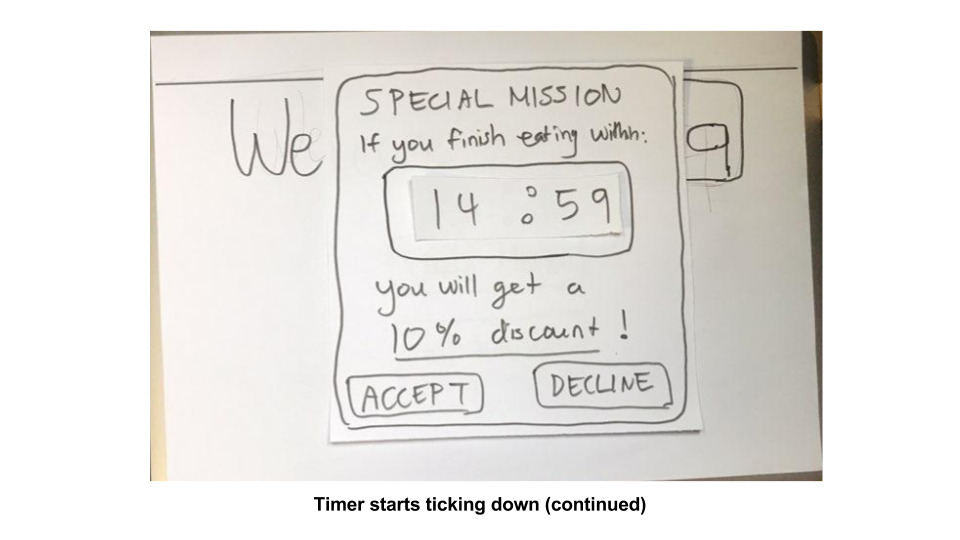 We
SPECIAL MISSION
If you finish eating within:
14:59
you will get a
10% discount!
ACCEPT DECLINE
Timer starts ticking down (continued)